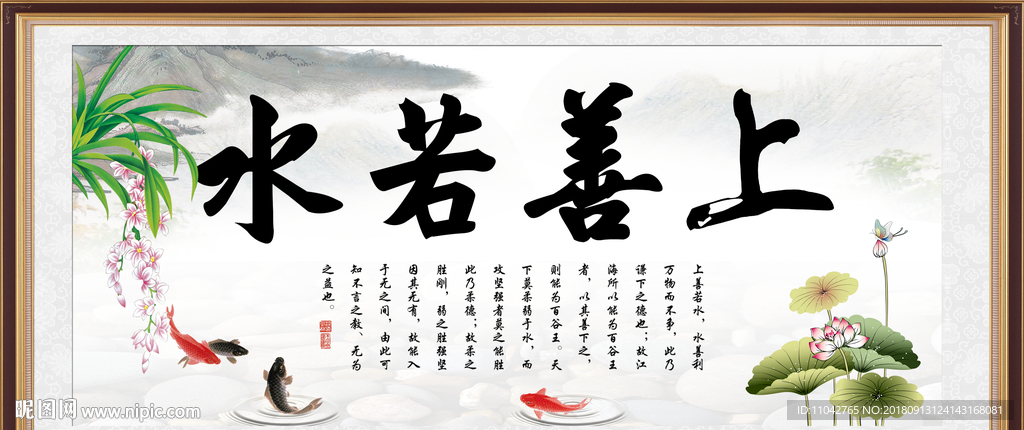 上善若水
上善若水,水善利
万物而不争,此乃
谦下之德也;故江
海所以能为百谷王
者,以其善下之,
则能为百谷王。天
下莫柔弱于水,而
攻坚强者莫之能胜
此乃柔德;故柔之
胜刚,弱之胜强坚
因其无有,故能入
于无之间,由此可
知不言之教、无为
之益也。
昵图网 www.nipic.com
ID:11042765 NO:20180913124143168081